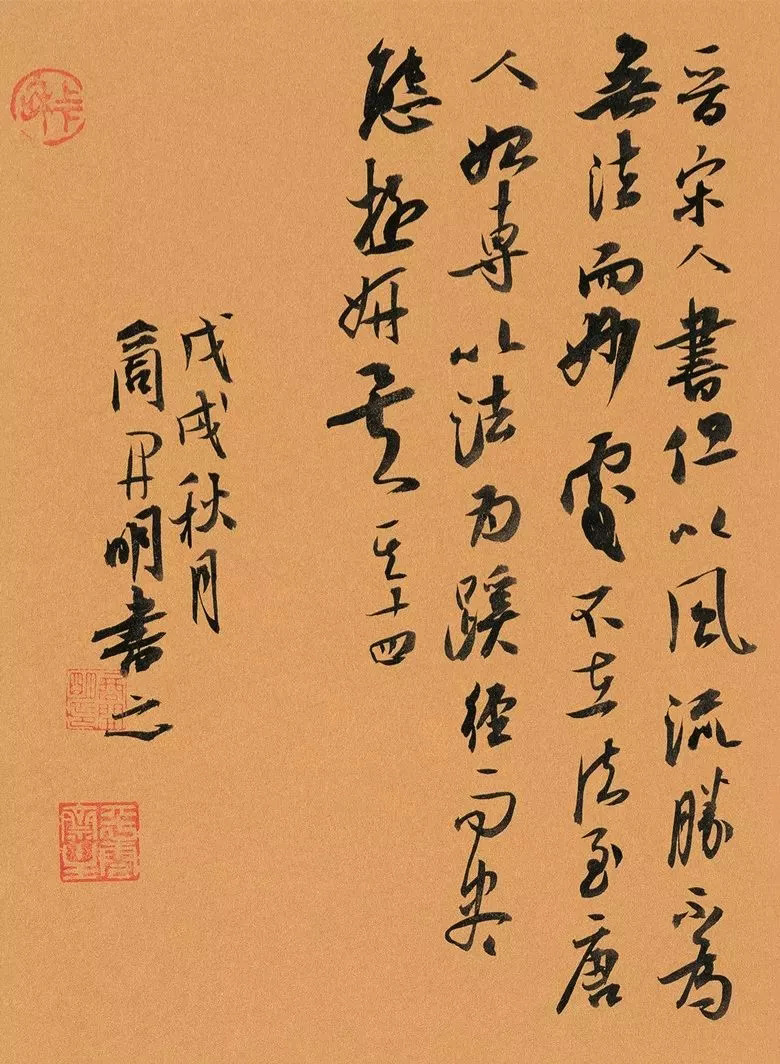 晋宋人書但以風流勝不為
無法而妙處不在法至唐
人始專以法为蹊徑而盡
態極妍矣 其十四
戊戌秋月
商開明書之